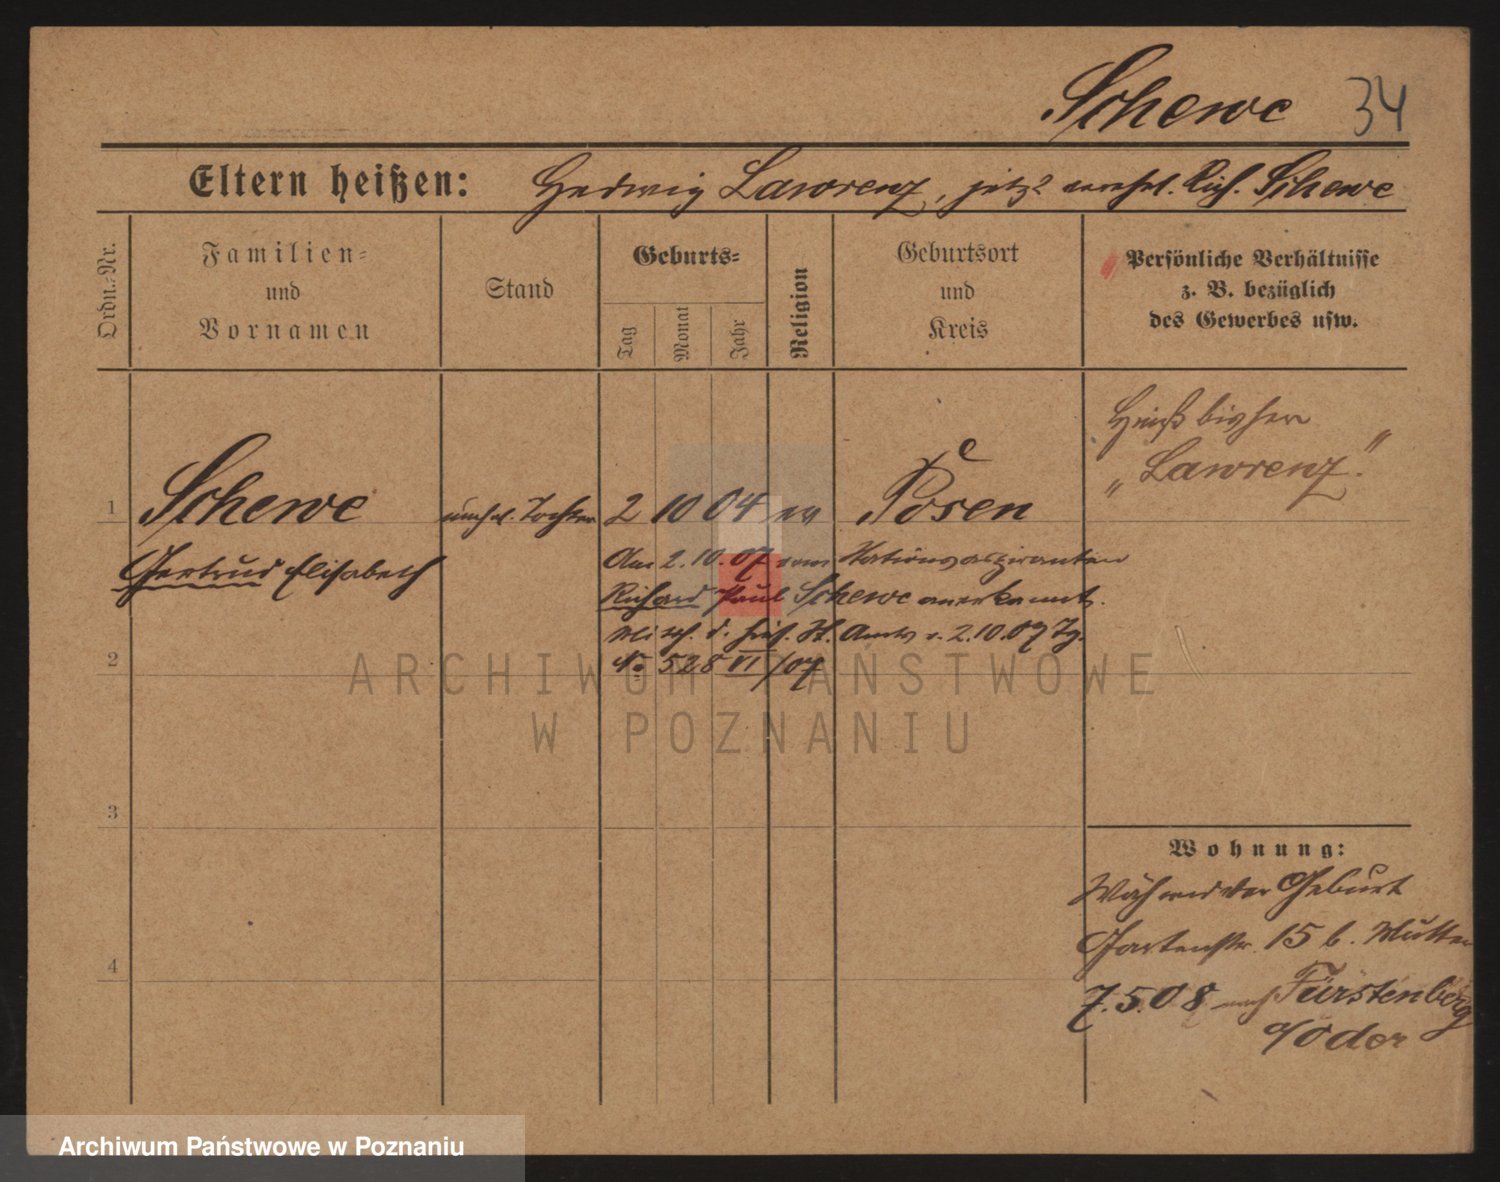 Schewe 34
Eltern heißen: Hedwig Lawrenz, jetzt verehel. Rich. Schewe
Ordn.-Nr.
Familien-
und
Vornamen
Stand
Geburts-
Tag
Monat
Jahr
Religion
Geburtsort
und
Kreis
Persönliche Verhältnisse
z. B. bezüglich
des Gewerbes usw.
Hieß bisher
„Lawrenz."
1 Schewe unehel. Tochter 2 10 04 ev Posen
Gertrud Elisabeth
Am 2.10.07 vom Stationsaspiranten
Richard Paul Schewe anerkannt.
d. St. Amts v. 2.10.07 Tg.
No 528 VI/07
2
ARCHIWUM PAŃSTWOWE
W POZNANIU
3
Wohnung:
Während der Geburt
Gartenstr. 15 b. Mutter
4
7.5.08 nach Fürstenberg
a/Oder
Archiwum Państwowe w Poznaniu